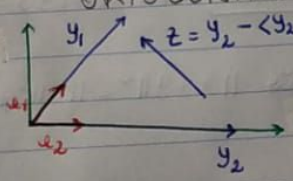 y₁
z = y₂ - <y₂
e₁
e₂
y₂